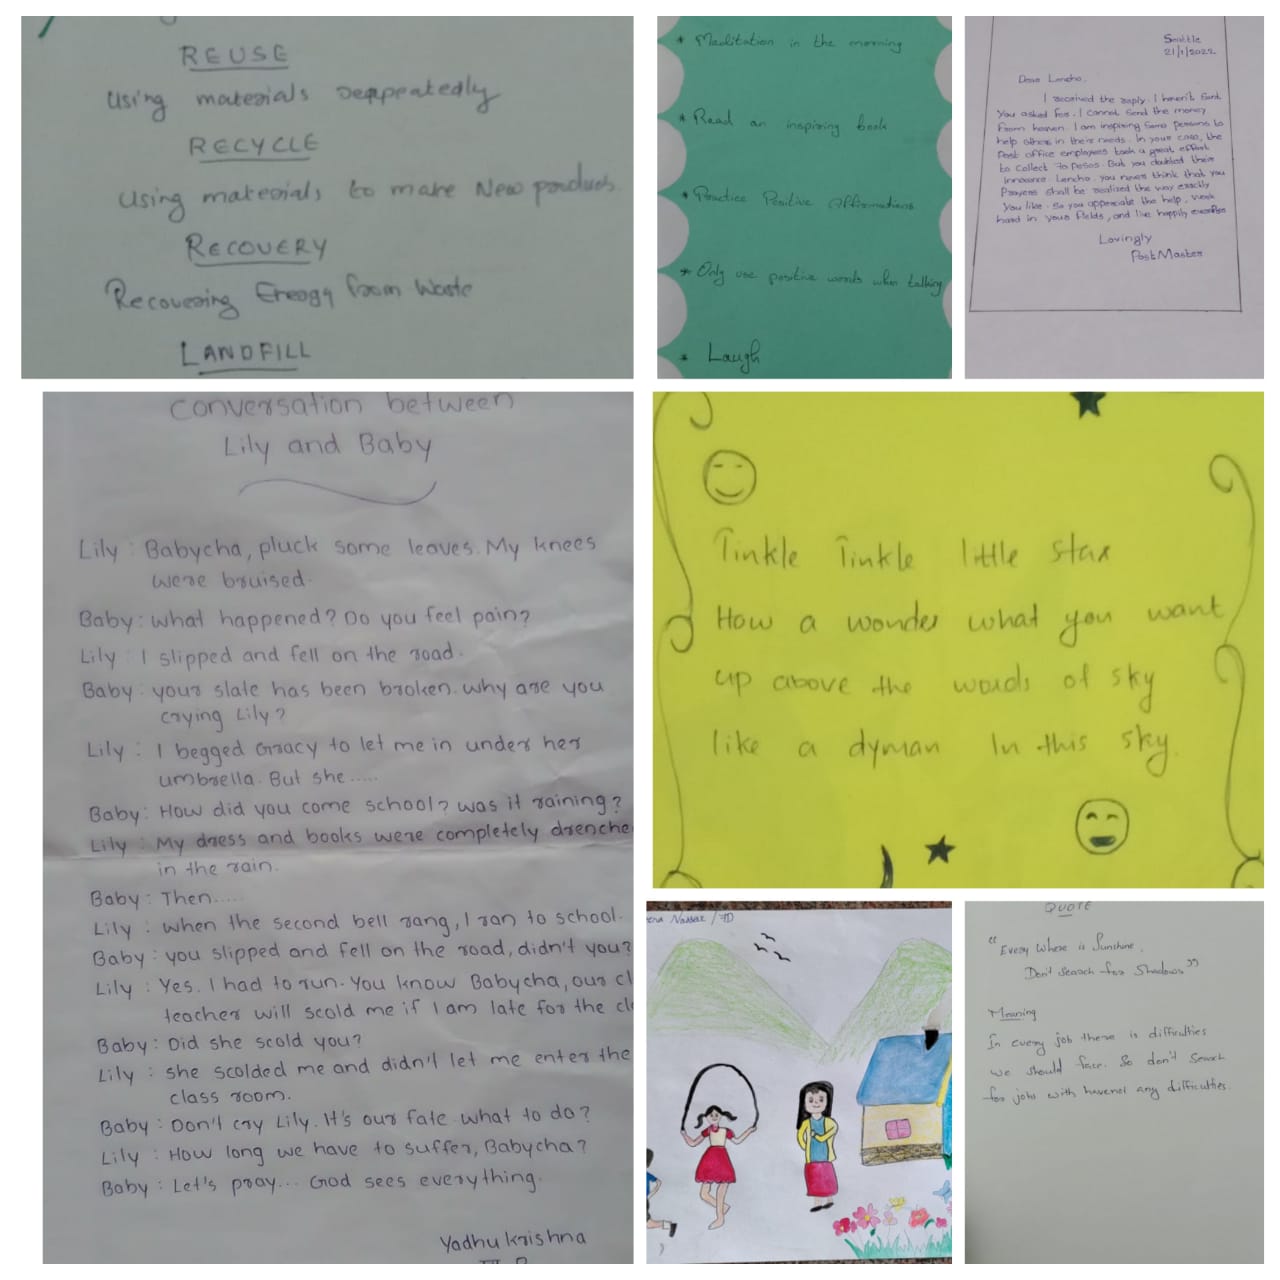 REUSE
Using materials Reappeatedly
RECYCLE
Using materials to make New products
RECOVERY
Recovering Energy from Waste
LANDFILL
* Meditation in the morning
* Read an inspiring book
* Practice Positive Affirmations
* Only use positive words when talking
* Laugh
Seattle
21/1/2022
Dear Lencho,
I received the reply. I haven't
You asked for. I cannot send the money
from heaven. I am inspiring some persons to
help others in their needs. In your case, the
Post office employees took a great effort
to collect 70 pesos. But you doubted their
innocence Lencho. you never think that you
Prayers shall be realized the way exactly
You like. So you appreciate the help, work
hard in your fields, and live happily
Lovingly
Post Master
Conversation between
Lily and Baby
Lily : Babycha, pluck some leaves. My knees
were bruised.
Baby : what happened? Do you feel pain?
Lily : I slipped and fell on the road.
Baby : your slate has been broken. why are you
crying Lily?
Lily : I begged Gracy to let me in under her
umbrella. But she.....
Baby : How did you come school? was it raining?
Lily : My dress and books were completely drenche
in the rain.
Baby : Then.....
Lily : when the second bell rang, I ran to school.
Baby : you slipped and fell on the road, didn't you?
Lily : Yes. I had to run. You know Babycha, our cl
teacher will scold me if I am late for the cl
Baby : Did she scold you?
Lily : she scolded me and didn't let me enter the
class room.
Baby : Don't cry Lily. It's our fate. what to do?
Lily : How long we have to suffer, Babycha?
Baby : Let's pray... God sees everything.
Yadhu krishna
Tinkle Tinkle little star
How a wonder what you want
up above the words of sky
like a dyman In this sky.
Nassar / 7D
QUOTE
"Every Where is Sunshine,
Don't Search for Shadows"
Meaning
In every job there is difficulties
we should face. So don't Search
for jobs with havenot any difficulties.